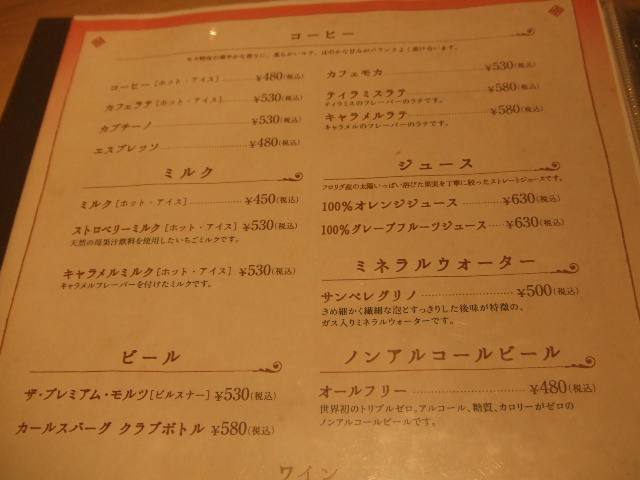 コーヒー
モカ特有の華やかな香りに、柔らかいコク、ほのかな甘みがバランスよく溶け合います。
コーヒー[ホット・アイス] ¥480(税込)
カフェラテ[ホット・アイス] ¥530(税込)
カプチーノ ¥530(税込)
エスプレッソ ¥480(税込)
カフェモカ ¥530(税込)
ティラミスラテ ¥580(税込)
ティラミスのフレーバーのラテです。
キャラメルラテ ¥580(税込)
キャラメルのフレーバーのラテです。
ミルク
ミルク[ホット・アイス] ¥450(税込)
ストロベリーミルク[ホット・アイス] ¥530(税込)
天然の苺果汁飲料を使用したいちごミルクです。
キャラメルミルク[ホット・アイス] ¥530(税込)
キャラメルフレーバーを付けたミルクです。
ジュース
フロリダ産の太陽いっぱい浴びた果実を丁寧に絞ったストレートジュースです。
100%オレンジジュース ¥630(税込)
100%グレープフルーツジュース ¥630(税込)
ミネラルウォーター
サンペレグリノ ¥500(税込)
きめ細かく繊細な泡とすっきりした後味が特徴の、
ガス入りミネラルウォーターです。
ビール
ザ・プレミアム・モルツ[ピルスナー] ¥530(税込)
カールスバーグ クラブボトル ¥580(税込)
ノンアルコールビール
オールフリー ¥480(税込)
世界初のトリプルゼロ。アルコール、糖質、カロリーがゼロの
ノンアルコールビールです。
ワイン